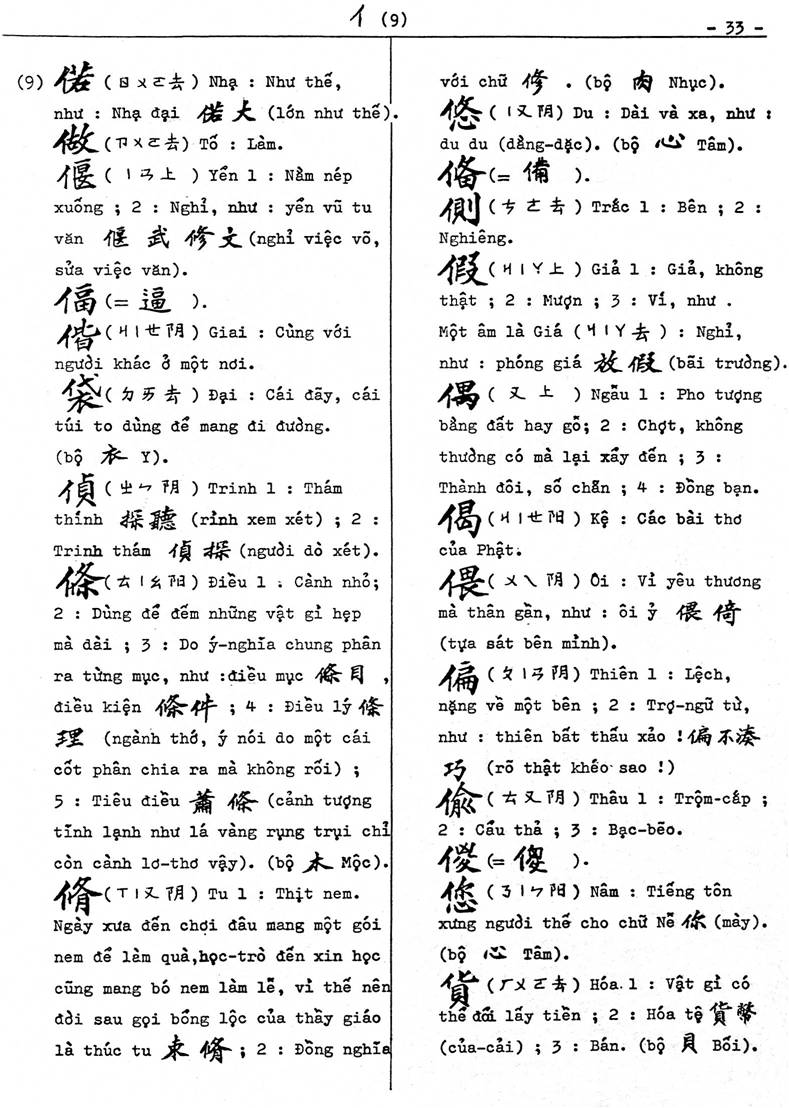 亻 (9)
- 33 -
(9) 偌 (ㄖㄨㄛ去) Nhạ : Như thế,
như : Nhạ đại 偌大 (lớn như thế).
做 (ㄗㄨㄛ去) Tố : Làm.
偃 (ㄧㄢ上) Yển 1 : Nằm nép
xuống ; 2 : Nghỉ, như : yển vũ tu
văn 偃武修文 (nghỉ việc võ,
sửa việc văn).
偪 (= 逼 ).
偕 (ㄐㄧㄝ阴) Giai : Cùng với
người khác ở một nơi.
袋 (ㄉㄞ去) Đại : Cái đẫy, cái
túi to dùng để mang đi đường.
(bộ 衣 Y).
偵 (ㄓㄣ阴) Trinh 1 : Thám
thính 探聽 (rình xem xét) ; 2 :
Trinh thám 偵探 (người dò xét).
條 (ㄊㄧㄠ阳) Điều 1 : Cành nhỏ;
2 : Dùng để đếm những vật gì hẹp
mà dài ; 3 : Do ý-nghĩa chung phân
ra từng mục, như :điều mục 條目 ,
điều kiện 條件 ; 4 : Điều lý 條
理 (ngành thớ, ý nói do một cái
cốt phân chia ra mà không rối) ;
5 : Tiêu điều 蕭條 (cảnh tượng
tĩnh lạnh như lá vàng rụng trụi chỉ
còn cành lơ-thơ vậy). (bộ 木 Mộc).
脩 (ㄒㄧㄡ阴) Tu 1 : Thịt nem.
Ngày xưa đến chơi đâu mang một gói
nem để làm quà,học-trò đến xin học
cũng mang bó nem làm lễ, vì thế nên
đời sau gọi bổng lộc của thầy giáo
là thúc tu 束脩 ; 2 : Đồng nghĩa
với chữ 修 . (bộ 肉 Nhục).
悠 (ㄧㄡ阴) Du : Dài và xa, như :
du du (dằng-dặc). (bộ 心 Tâm).
俻 (= 備 ).
側 (ㄘㄜ去) Trắc 1 : Bên ; 2 :
Nghiêng.
假 (ㄐㄧㄚ上) Giả 1 : Giả, không
thật ; 2 : Mượn ; 3 : Ví, như .
Một âm là Giá (ㄐㄧㄚ去) : Nghỉ,
như : phóng giá 放假 (bãi trường).
偶 (ㄡ上) Ngẫu 1 : Pho tượng
bằng đất hay gỗ; 2 : Chợt, không
thường có mà lại xẩy đến ; 3 :
Thành đôi, số chẵn ; 4 : Đồng bạn.
偈 (ㄐㄧㄝ阳) Kệ : Các bài thơ
của Phật.
偎 (ㄨㄟ阴) Ôi : Vì yêu thương
mà thân gần, như : ôi ỷ 偎倚
(tựa sát bên mình).
偏 (ㄆㄧㄢ阴) Thiên 1 : Lệch,
nặng về một bên ; 2 : Trợ-ngữ từ,
như : thiên bất thấu xảo ! 偏不湊
巧 (rõ thật khéo sao !)
偸 (ㄊㄡ阴) Thâu 1 : Trộm-cắp ;
2 : Cẩu thả ; 3 : Bạc-bẽo.
傁 (= 傻 ).
您 (ㄋㄧㄣ阳) Nâm : Tiếng tôn
xưng người thế cho chữ Nễ 你 (mày).
(bộ 心 Tâm).
貨 (ㄏㄨㄛ去) Hóa 1 : Vật gì có
thể đổi lấy tiền ; 2 : Hóa tệ 貨幣
(của-cải) ; 3 : Bán. (bộ 貝 Bối).